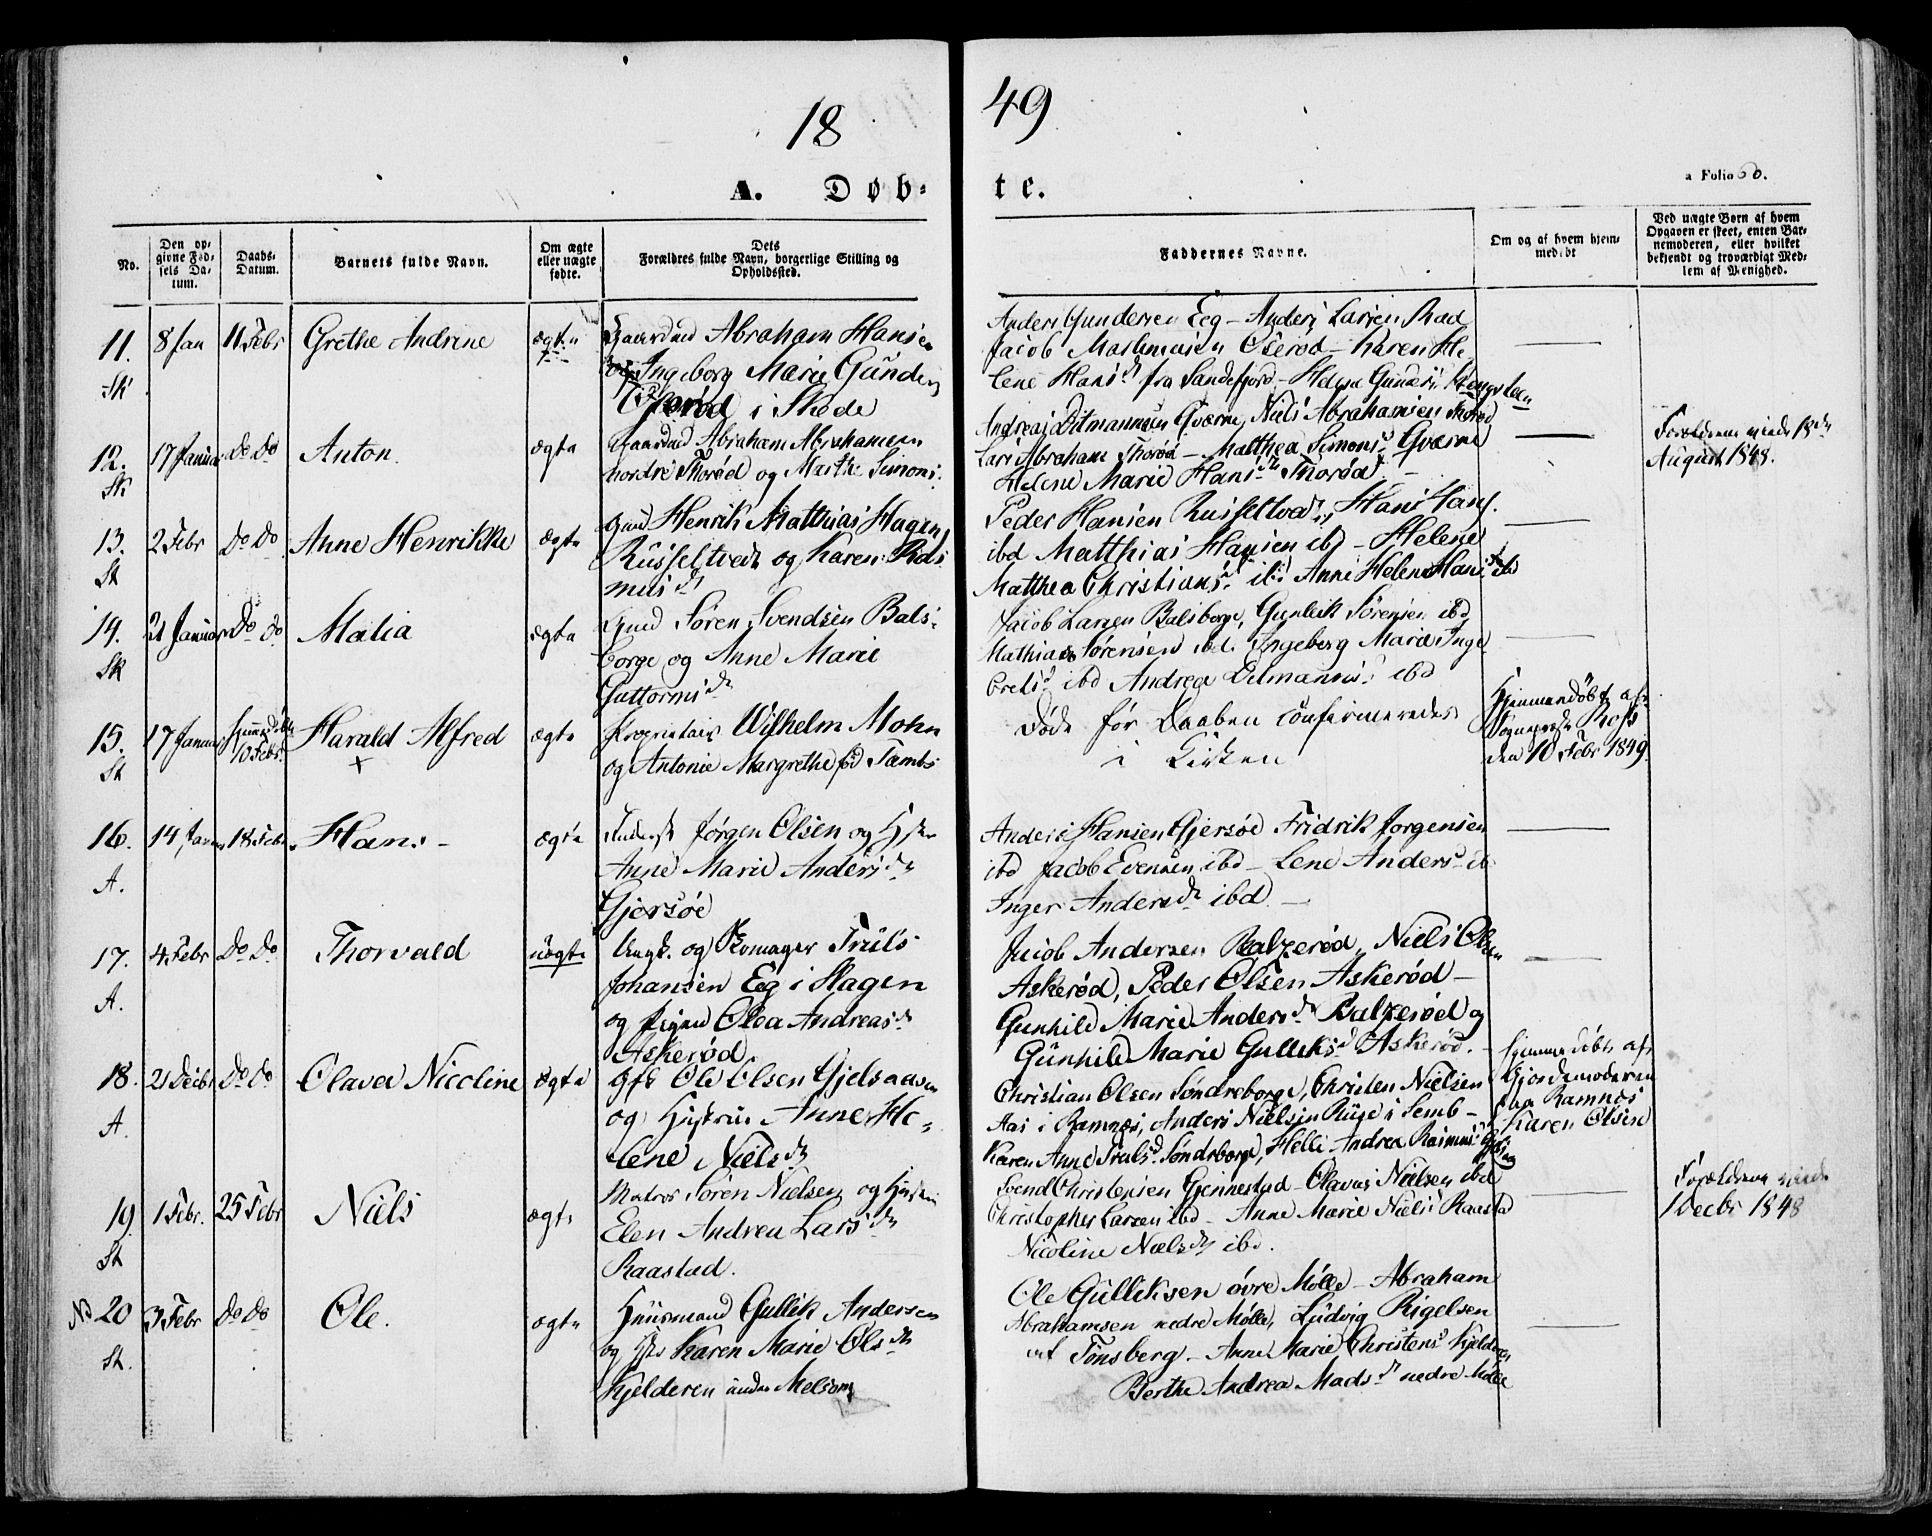 18 49
A. Døb- te.
a Folio 60.
No.
Den op-
givne Fød-
sels Da-
tum.
Daabs-
Datum.
Barnets fulde Navn.
Om ægte
eller uægte
fødte.
Dets
Forældres fulde Navn, borgerlige Stilling og
Opholdssted.
Faddernes Navne.
Om og af hvem hjem-
medøbt
Ved uægte Børn af hvem
Opgaven er skeet, enten Bar-
nemoderen, eller hvilket
bekjendt og troværdigt Med-
lem af Menighed.
11. 8 Jan 11 Febr Grethe Andrine ægte Gaardmd Abraham Hansen
Sk
og Ingeborg Marie Gunders
Oserød i Skede
Anders Gundersen Eeg - Anders Larsen Rad
Jacob Martinusen Oserød - Karen He-
lene Hansd fra Sandefjord - Helene Gunders
12. 17 Januar Do Do Anton. ægte Gaardmd Abraham Abrahamsen
Sk
nordre Thorød og Marthe Simons
Andreas Ditmannsen Gværne, Niels Abrahamsen Thorød
Lars Abraham Thorød - Matthea Simonsd Gværne
Helene Marie Hansd Thorød -
Forældrene viede 18de
August 1848.
13. 2 Febr Do Do Anne Henrikke ægte Gmd Henrik Mathias Hagen
St
Russeltvedt og Karen Ras
musd
Peder Hansen Russeltvedt, Hans Hans.
ibd Matthias Hansen ibd - Helene
Matthea Christiansd ibd Anne Helene Hansd ibd
14. 21 Januar Do Do Malia ægte Gmd Søren Svendsen Bals-
Sk
borge og Anne Marie
Guttormsd
Jacob Larsen Balsborge, Gunleik Sørensen ibd
Mathias Sørensen ibd Ingeborg Marie Inge
bretsd ibd Andrea Ditmannsd ibd
15. 17 Januar Hjemmedøbt 10 Febr. Harald Alfred ægte Proprietair Wilhelm Mohn
St
+
og Antonie Margrethe fød Tambs
Døde før Daaben confirmeredes
i Kirken
Hjemmedøbt af
Sognepræst
den 10 Febr 1849.
16. 14 Januar 18 Febr. Hans - ægte Jørgen Olsen og Hstr
A.
Anne Marie Andersd
Gjersøe
Anders Hansen Gjersøe Fridrik Jørgensen
ibd Jacob Evensen ibd - Lene Andersd ibd
Inger Andersd ibd -
17. 4 Febr Do Do Thorvald uægte Ungk. og Skomager Truls
A.
Johansen Eeg i Slagen
og Pigen Olea Andreasd
Askerød
Jacob Andersen Balzerød, Niels Olsen
Askerød, Peder Olsen Askerød -
Gunhild Marie Andersd Balzerød og
Gunhild Marie Gulliksd Askerød. -
18. 21 Decbr Do Do Olava Nicoline Ægte Gfb Ole Olsen Gjelsaasen
A.
og Hustrue Anne He-
lene Nielsd
Christian Olsen Søndreborge, Christen Nielsen
Aas i Ramnæs, Anders Nielsen Ruge i Semb -
Karen Anne Trulsd Søndreborge, Helle Andrea Rasmusd
Hjemmedøbt af
Gjordemoderen
paa Ramnæs
Karen Olsen
19. 1 Febr. 25 Febr Niels ægte Matros Søren Nielsen og Hustru
St
Elen Andrea Larsd
Raastad.
Svend Christensen Gjennestad - Olavus Nielsen ibd
Christopher Larsen ibd - Anne Marie Nielsd Raastad
Nicoline Nielsd ibd.
Forældrene viede
1 Decbr 1848
No 20 3 Febr Do Do Ole. ægte Huusmand Gullik Andersen
St.
og Hst Karen Marie Olsd
Kjelderen under Melsom
Ole Gulliksen øvre Mølle - Abraham
Abrahamsen nedre Mølle, Ludvig Rigelsen
af Tønsberg - Anne Marie Christensd Kjelderen
Berthe Andrea Madsd nedre Mølle